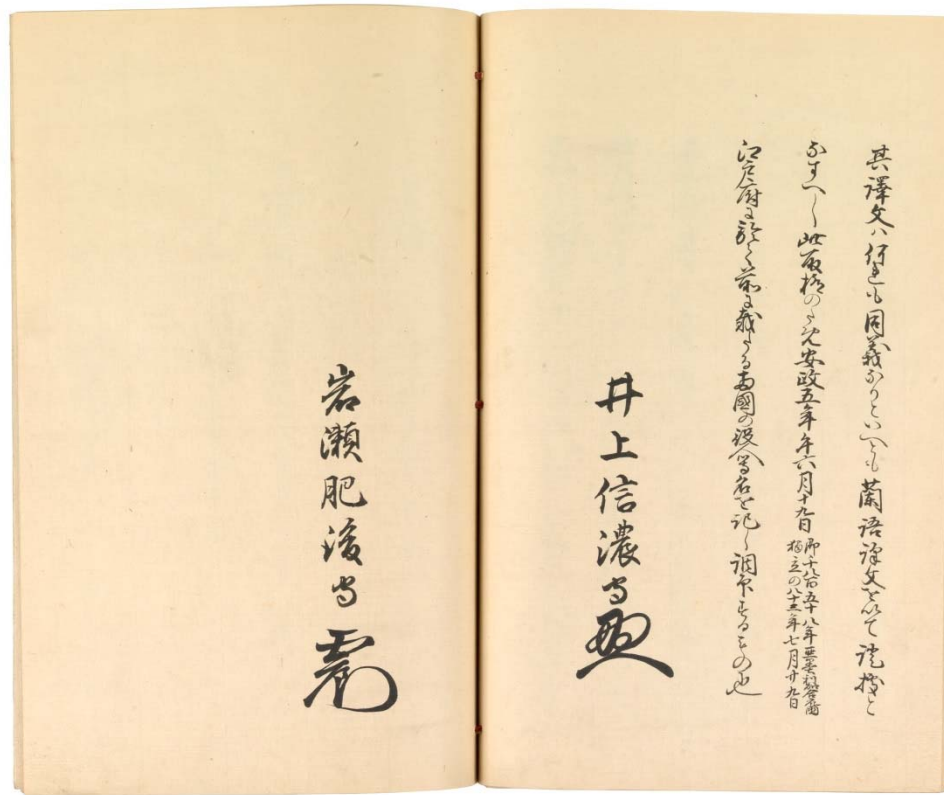 其譯文ハ何連も同義なりといへとも蘭語譯文を以て證據と
なすへし此取極のため安政五年午六月十九日
即千八百五十八年亜墨利加合衆國
獨立の八十三年七月廿九日
江戸府に於て前に載たる両國の役人等名を記し調印する者也
井上信濃守
岩瀬肥後守